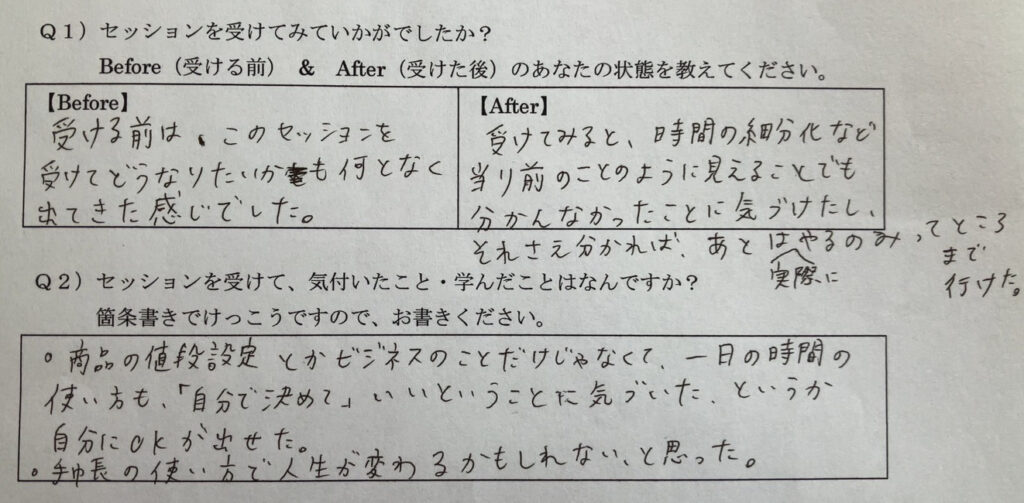 Q1）セッションを受けてみていかがでしたか？
Before（受ける前） & After（受けた後）のあなたの状態を教えてください。
【Before】
受ける前は、このセッションを
受けてどうなりたいかも何となく
出てきた感じでした。
【After】
受けてみると、時間の細分化など
当り前のことのように見えることでも
分かんなかったことに気づけたし、
それさえ分かれば、あとは実際にやるのみってところ
まで
行けた。
Q2）セッションを受けて、気付いたこと・学んだことはなんですか？
箇条書きでけっこうですので、お書きください。
。商品の値段設定とかビジネスのことだけじゃなくて、一日の時間の
使い方も、「自分で決めて」いいということに気づいた、というか
自分にOKが出せた。
。手帳の使い方で人生が変わるかもしれない、と思った。